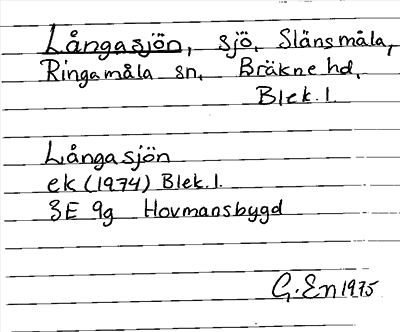 Långasjön, sjö, Slänsmåla,
Ringamåla sn, Bräkne hd,
Blek. l.
Långasjön
ek (1974) Blek. l.
3E 9g Hovmansbygd
G. En 1975